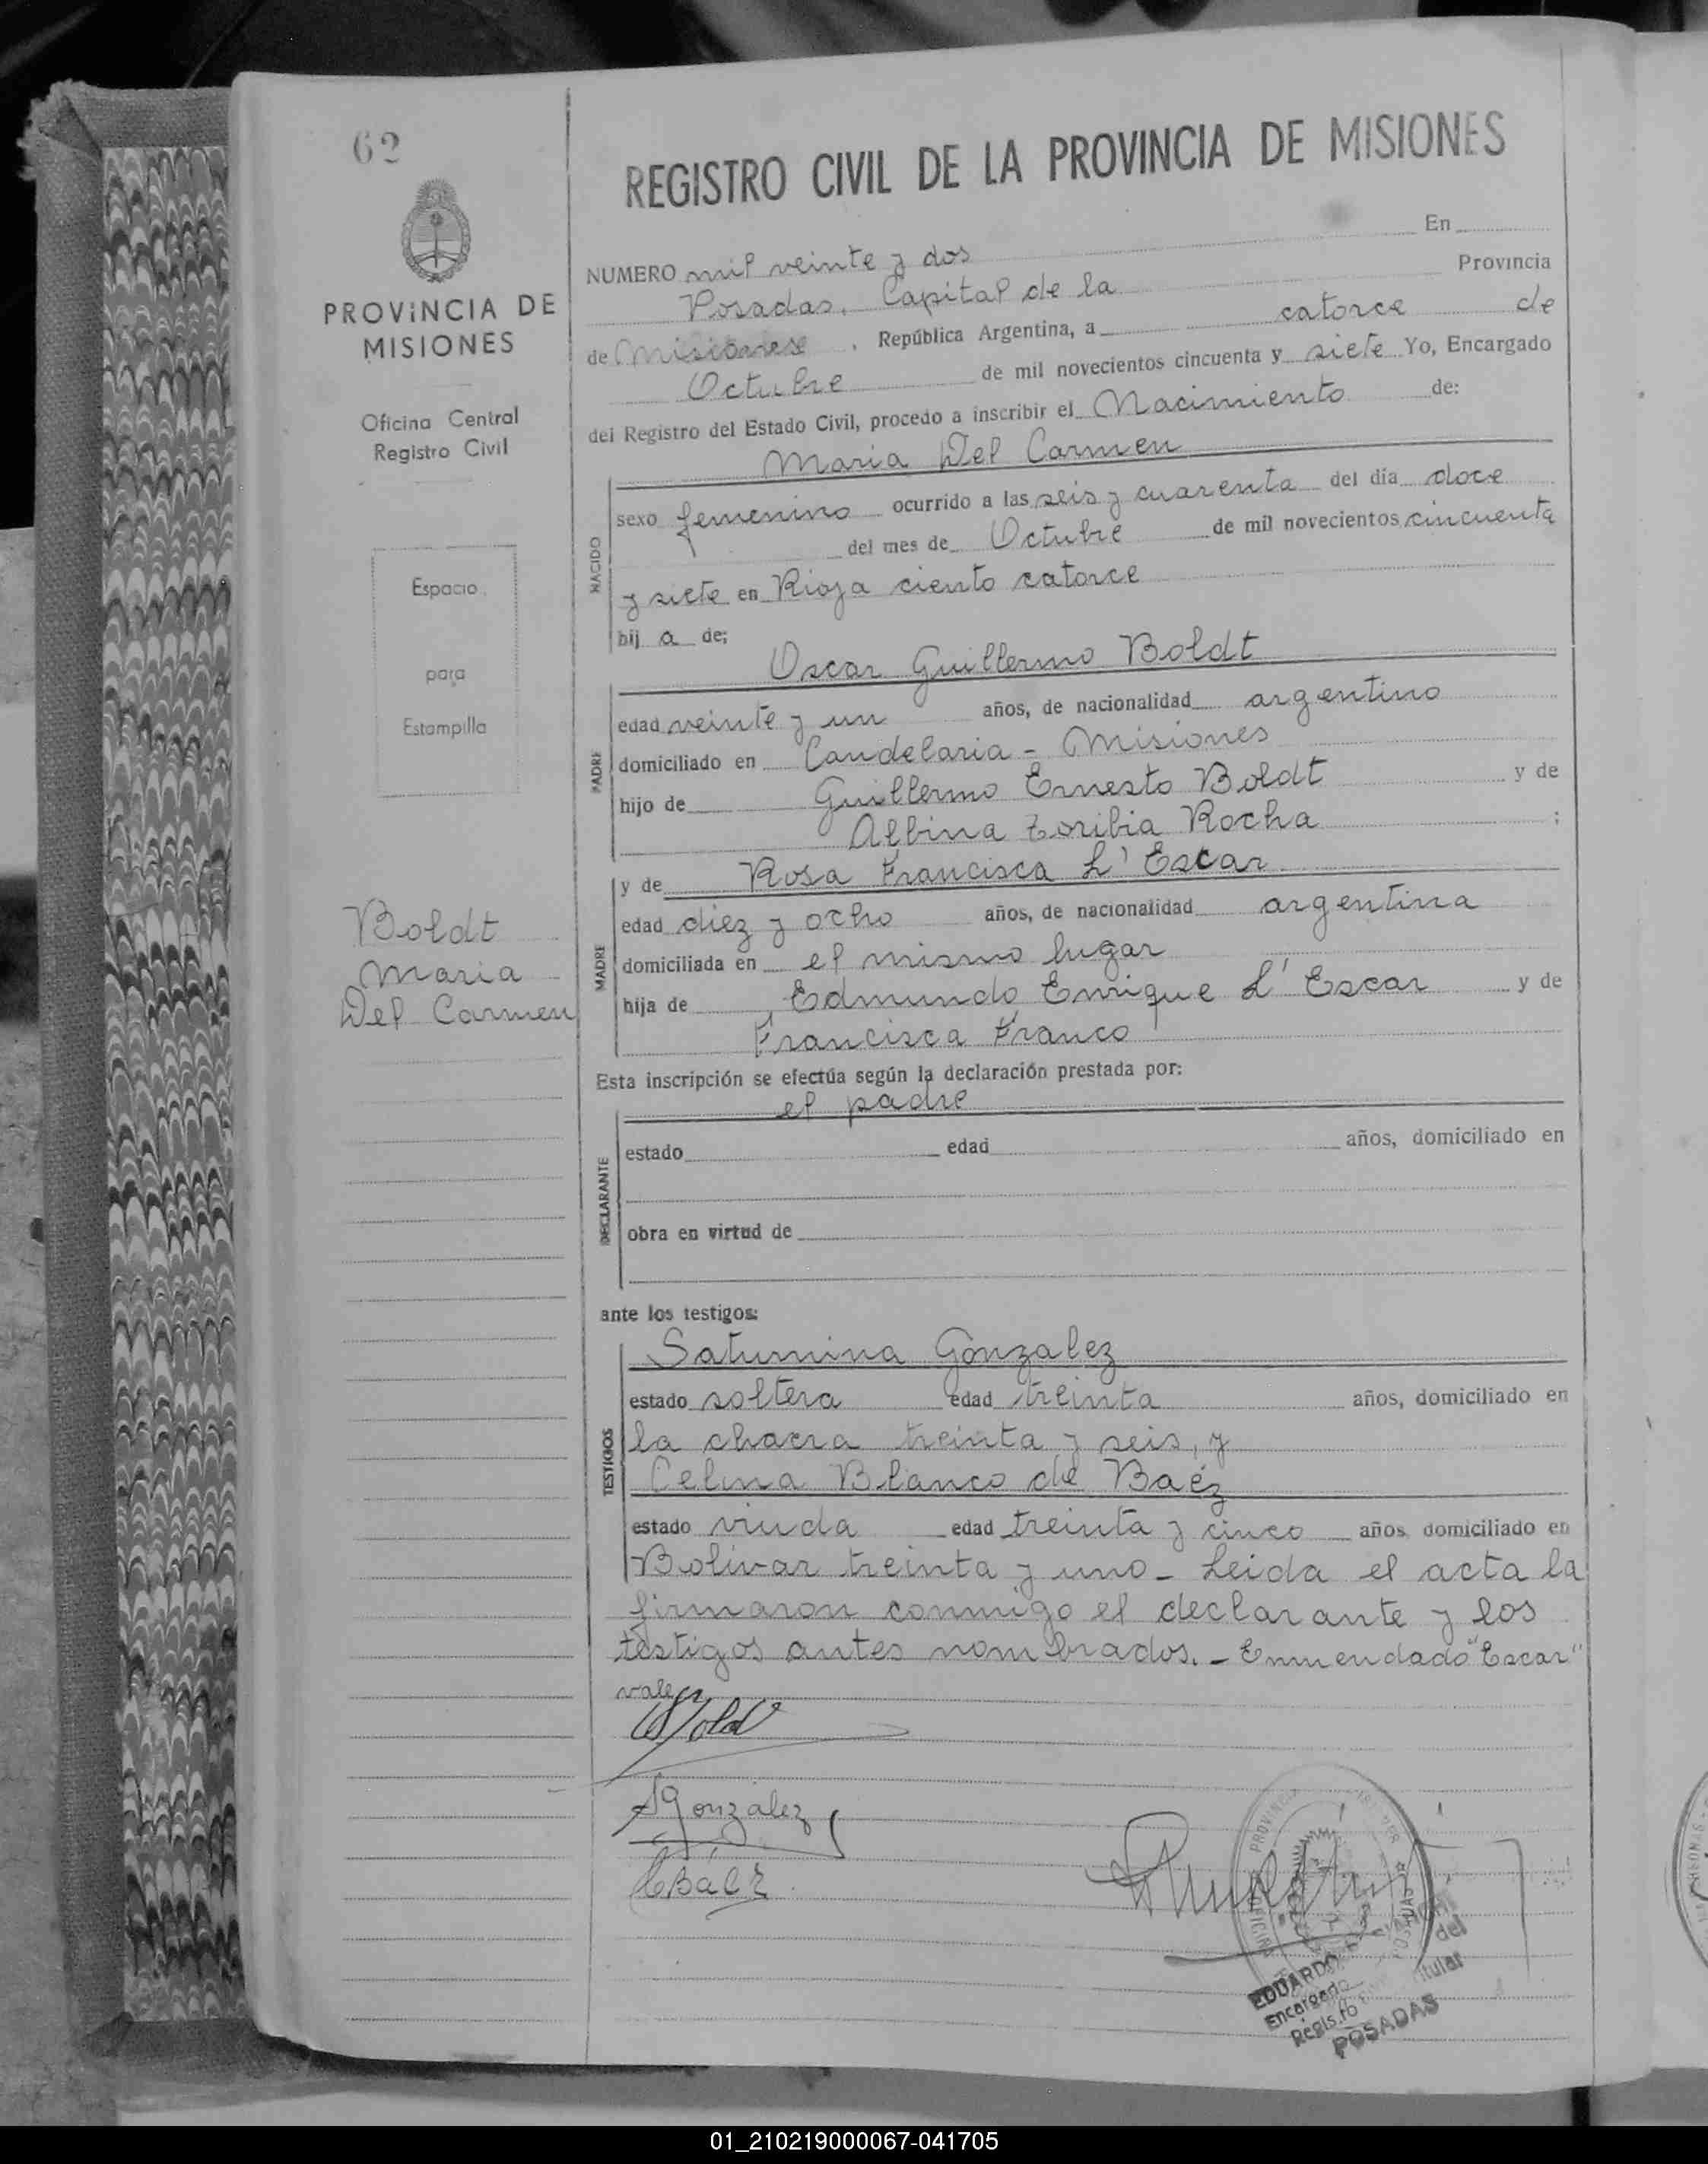 62
REGISTRO CIVIL DE LA PROVINCIA DE MISIONES
PROVINCIA DE
MISIONES
Oficina Central
Registro Civil
Espacio
para
Estampilla
Boldt
Maria
Del Carmen
NUMERO mil veinte y dos En
Posadas, Capital de la Provincia
de Misiones, República Argentina, a catorce de
Octubre de mil novecientos cincuenta y siete Yo, Encargado
del Registro del Estado Civil, procedo a inscribir el Nacimiento de:
Maria Del Carmen
NACIDO
sexo femenino ocurrido a las seis y cuarenta del día doce
del mes de Octubre de mil novecientos cincuenta
y siete en Rioja ciento catorce
hij a de;
Oscar Guillermo Boldt
PADRE
edad veinte y un años, de nacionalidad argentino
domiciliado en Candelaria - Misiones
hijo de Guillermo Ernesto Boldt y de
Albina Toribia Rocha ;
y de Rosa Francisca L' Escar
MADRE
edad diez y ocho años, de nacionalidad argentina
domiciliada en el mismo lugar
hija de Edmundo Enrique L' Escar y de
Francisca Franco
Esta inscripción se efectúa según la declaración prestada por:
el padre
DECLARANTE
estado edad años, domiciliado en
obra en virtud de
ante los testigos:
TESTIGOS
Saturnina Gonzalez
estado soltera edad treinta años, domiciliado en
la chacra treinta y seis, y
Celina Blanco de Baéz
estado viuda edad treinta y cinco años, domiciliado en
Bolivar treinta y uno - Leida el acta la
firmaron conmigo el declarante y los
testigos antes nombrados. - Enmendado "Escar"
vale
Boldt
SGonzalez
CBáez
PROVINCIA
POSADAS
EDUARDO
Encargado del
Registro Titular
POSADAS
01_210219000067-041705